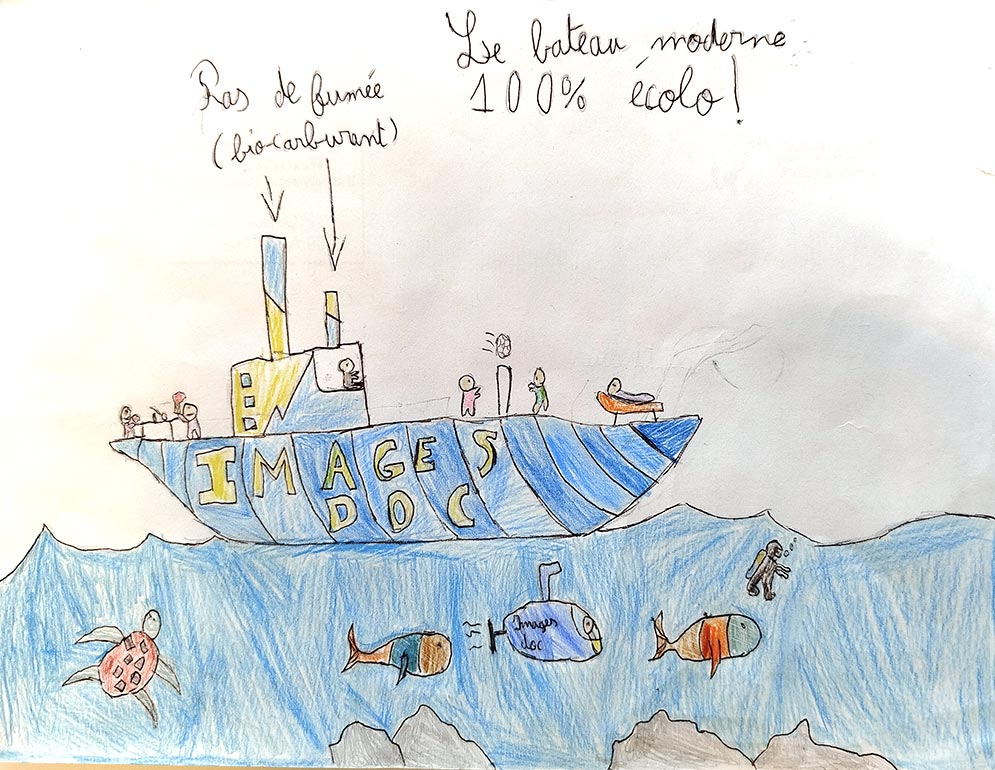 Le bateau moderne
100% écolo!
Pas de fumée
(bio-carburant)
IMAGES
DOC
Images
doc